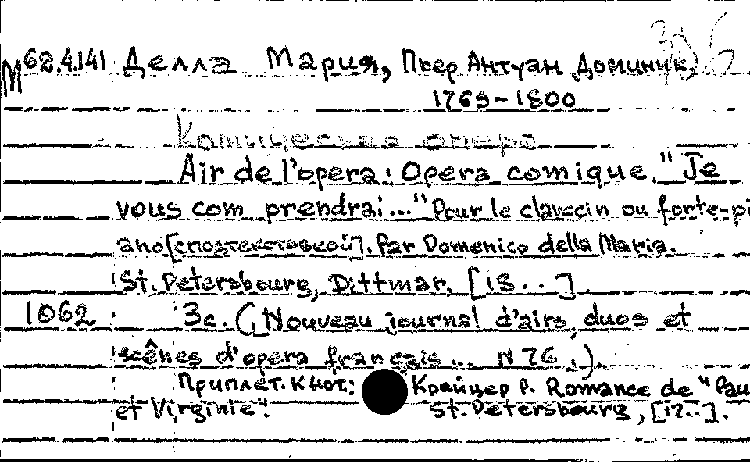 М62.4.141 Делла Мария, Пьер Антуан Доминик,
1769-1800
Комическая опера
Air de l'opera: Opera comique. "Je
vous com prendrai..." Pour le clavecin ou forte-pi
ano [с подтекстовкой]. Par Domenico della Maria.
St. Petersbourg, Dittmar, [18..]
1062 3с. (Nouveau journal d'airs, duos et
scênes d'opera français... N 76.).
Приплет. к нот: Крайцер Р. Romance de "Pau
et Virginie". St. Petersbourg, [17..].